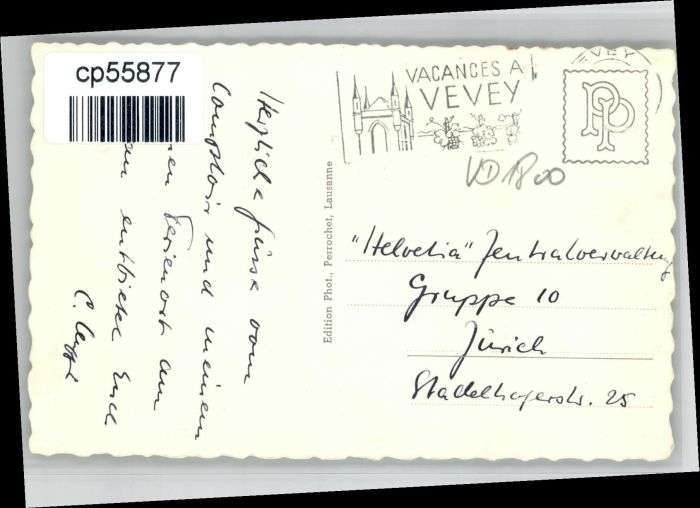 cp55877
Herzliche Grüsse vom
Comptoir und meinem
nen Ferienort am
entbietet Euch
C.
Edition Phot., Perrochet, Lausanne
VACANCES A
VEVEY
VEY
PP
VD 1800
"Helvetia" Zentralverwaltung
Gruppe 10
Zürich
Stadelhoferstr. 25